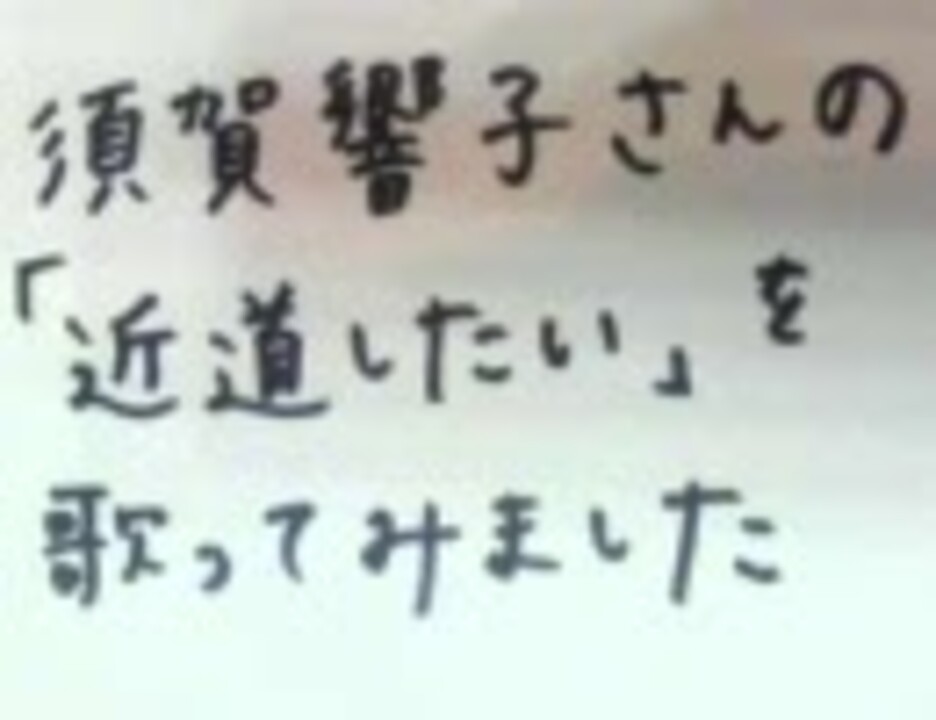 須賀響子さんの
「近道したい」を
歌ってみました